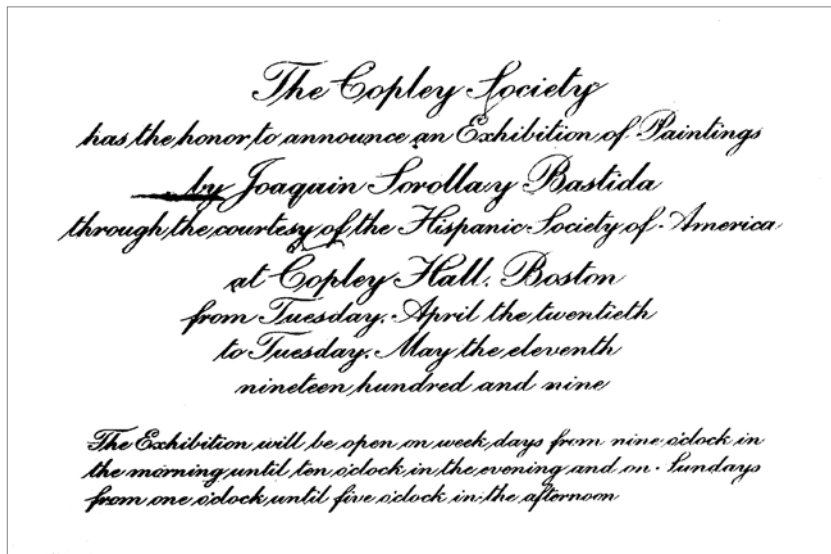 The Copley Society
has the honor to announce an Exhibition of Paintings
by Joaquin Sorolla y Bastida
through the courtesy of the Hispanic Society of America
at Copley Hall, Boston
from Tuesday, April the twentieth
to Tuesday, May the eleventh
nineteen hundred and nine
The Exhibition will be open on week days from nine o'clock in
the morning until ten o'clock in the evening and on Sundays
from one o'clock until five o'clock in the afternoon